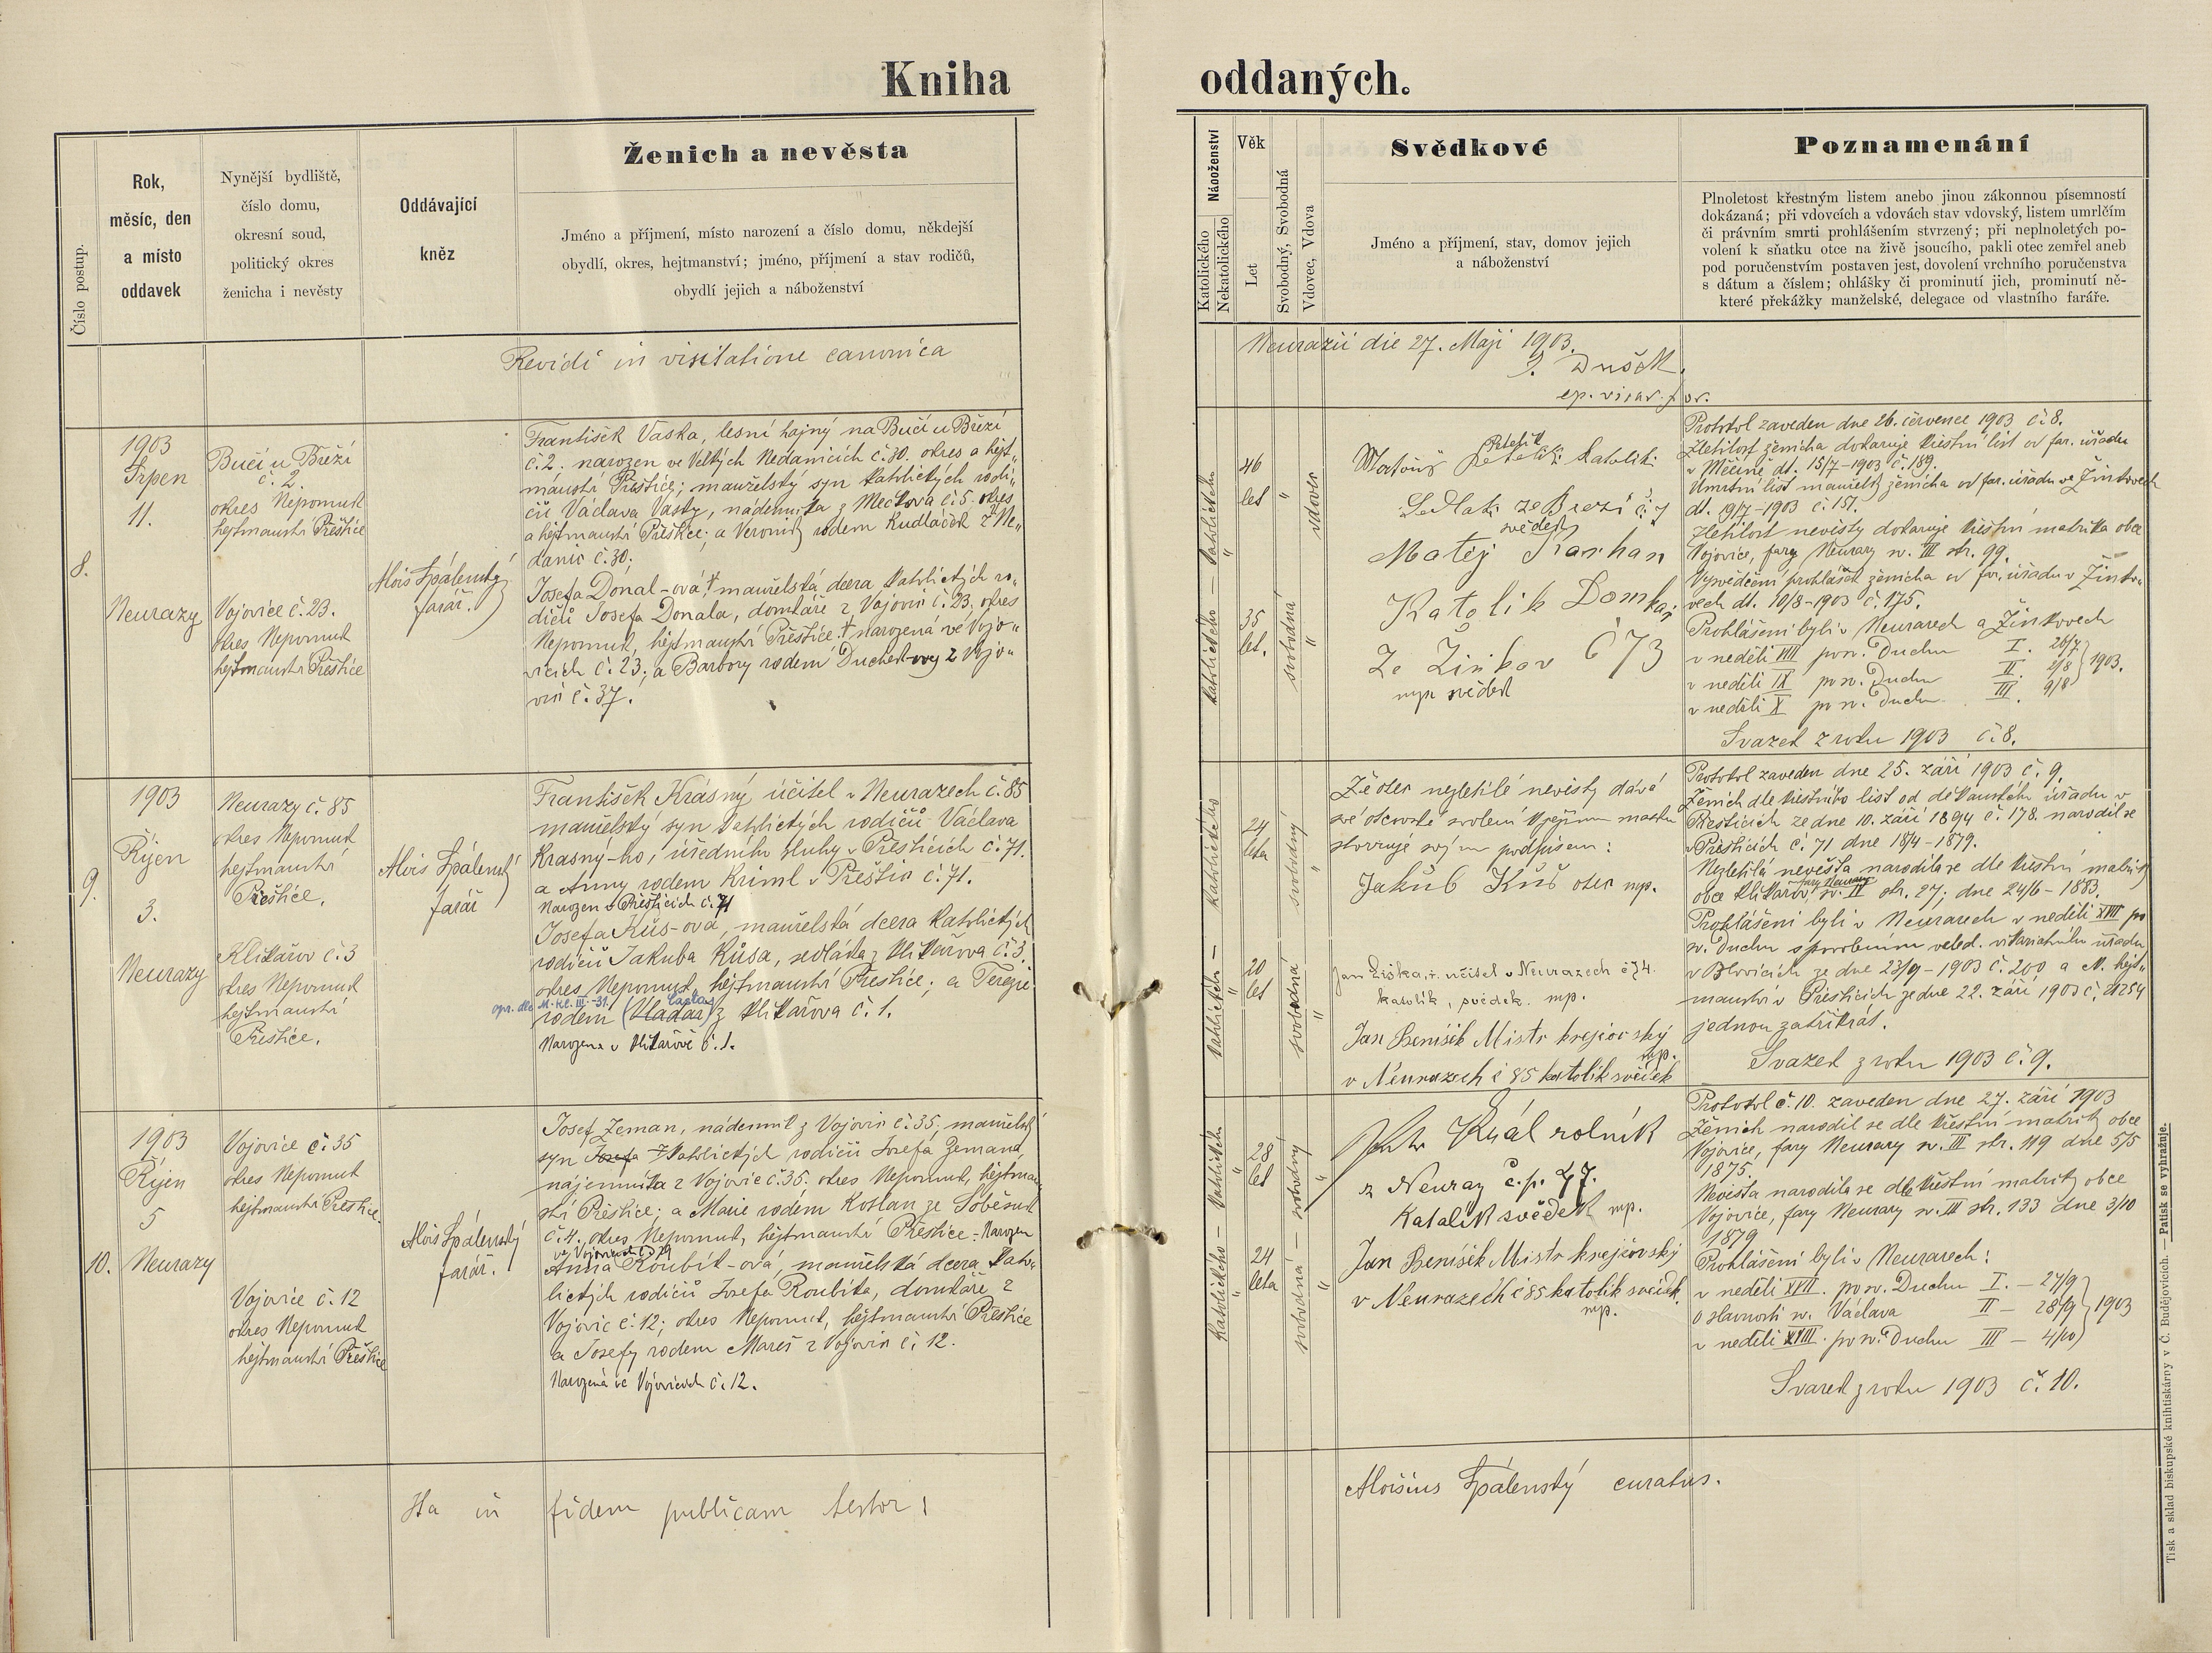 Kniha oddaných.
Číslo postup.
Rok,
měsíc, den
a místo
oddavek
Nynější bydliště,
číslo domu,
okresní soud,
politický okres
ženicha i nevěsty
Oddávající
kněz
Ženich a nevěsta
Jméno a příjmení, místo narození a číslo domu, někdejší
obydlí, okres, hejtmanství; jméno, příjmení a stav rodičů,
obydlí jejich a náboženství
Náboženství
Katolického
Nekatolického
Věk
Let
Svobodný, Svobodná
Vdovec, Vdova
Svědkové
Jméno a příjmení, stav, domov jejich
a náboženství
Poznamenání
Plnoletost křestným listem anebo jinou zákonnou písemností
dokázaná; při vdovcích a vdovách stav vdovský, listem umrlčím
či právním smrti prohlášením stvrzený; při neplnoletých po-
volení k sňatku otce na živě jsoucího, pakli otec zemřel aneb
pod poručenstvím postaven jest, dovolení vrchního poručenstva
s dátum a číslem; ohlášky či prominutí jich, prominutí ně-
které překážky manželské, delegace od vlastního faráře.
Revidi in visitatione canonica
Neurazii die 27. Maji 1903.
J. Dušek
ep. vicar. for.
8.
1903
Srpen
11.
Neurazy
Bučí u Březí
č. 2.
okres Nepomuk
hejtmanství Přeštice
Vojovice č. 23.
okres Nepomuk
hejtmanství Přeštice
Alois Spálenský
farář.
František Vaska, lesní hajný na Bučí u Březí
č. 2. narozen ve Velkých Nedanicích č. 30. okres a hejt„
manství Přeštice; manželský syn katolických rodi„
čů Václava Vasky, nádenníka z Mečkova č. 5. okres
a hejtmanství Přeštice; a Veroniky rodem Kudláček z Ne„
danic č. 30;
Josefa Donal-ová, manželská dcera katolických ro„
dičů Josefa Donala, domkáře z Vojovic č. 23. okres
Nepomuk, hejtmanství Přeštice. narozená ve Vojo„
vicích č. 23; a Barbory rodem Duchek-ovy z Vojo„
vic č. 37.
katolického — katolického
46
let
35
let.
vdovec
svobodná
katolík
Sedlak ze Březí č. 7
svědek
Matěj Karhan
Katolik Domkař
Ze Žinkov Č 73
mp. svědek
Protokol zaveden dne 26. července 1903 č. 8.
Zletilost ženicha dokazuje křestní list od far. úřadu
v Měčíně dt. 15/7 – 1903 č. 189.
Úmrtní list manželky ženicha od far. úřadu ve Žinkovech
dt. 19/7 – 1903 č. 151.
Zletilost nevěsty dokazuje křestní matrika obce
Vojovice, fary Neurazy sv. III str. 99.
Vysvědčení prohlášek ženicha od far. úřadu v Žinko„
vech dt. 10/8 – 1903 č. 175.
Prohlášeni byli v Neurazech a Žinkovech
v neděli VIII po sv. Duchu I. 26/7
v neděli IX po sv. Duchu II. 2/8 } 1903.
v neděli X po sv. Duchu III. 9/8
Svazek z roku 1903 č. 8.
9.
1903
Říjen
3.
Neurazy
Neurazy č. 85
okres Nepomuk
hejtmanství
Přeštice.
Klikařov č. 3
okres Nepomuk
hejtmanství
Přeštice.
Alois Spálenský
farář
František Krásný, učitel v Neurazech č. 85
manželský syn katolických rodičů Václava
Krásný-ho, úředního sluhy v Přešticích č. 71.
a Anny rodem Kriml v Přeštic č. 71.
Narozen v Přešticích č. 71
Josefa Kůs-ová, manželská dcera katolických
rodičů Jakuba Kůsa, sedláka z Klikařova č. 3.
okres Nepomuk, hejtmanství Přeštice; a Terezie
rodem (Vladař) z Klikařova č. 1.
Narozena v Klikařově č. 1.
katolického — katolického
24
leta
20
let
svobodný
svobodná
Že otec nezletilé nevěsty dává
své otcovské svolení k jejímu snatku
stvrzuje svým podpisem:
Jakub Kůs otec mp.
Jan Liška, ř. učitel v Neurazech č 74.
katolík, svědek. mp.
Jan Beníšek Mistr krejčovský
mp.
v Neurazech č 85 katolík svědek
Protokol zaveden dne 25. září 1903 č. 9.
Ženich dle křestního list od děkanského úřadu v
Přešticích ze dne 10. září 1894 č. 178. narodil se
v Přešticích č. 71 dne 18/4 – 1879.
Nezletilá nevěsta narodila se dle křestní matriky
obce Klikařov, fary Neurazy sv. II str. 27; dne 24/6 – 1883.
Prohlášeni byli v Neurazech v neděli XVII po
sv. Duchu s povolením veled. vikariatního úřadu
v Blovicích ze dne 23/9 – 1903 č. 200 a sl. hejt„
manství v Přešticích ze dne 22. září 1903 č. 21254
jednou za třikrát.
Svazek z roku 1903 č. 9.
10.
1903
Říjen
5
Neurazy
Vojovice č. 35
okres Nepomuk
hejtmanství Přeštice.
Vojovice č. 12
okres Nepomuk
hejtmanství Přeštice
Alois Spálenský
farář.
Josef Zeman, nádenník z Vojovic č. 35; manželský
syn Josefa katolických rodičů Josefa Zemana,
nájemníka z Vojovic č. 35. okres Nepomuk, hejtman
ství Přeštice; a Marie rodem Koslan ze Soběsuk
č. 4. okres Nepomuk, hejtmanství Přeštice. Narozen
ve Vojovicích č. 19
Anna Roubík-ová, manželská dcera kato„
lických rodičů Josefa Roubíka, domkáře z
Vojovic č. 12; okres Nepomuk, hejtmanství Přeštice
a Josefy rodem Mareš z Vojovic č. 12.
Narozená ve Vojovicích č. 12.
katolického — katolického
28
let
24
leta
svobodná — svobodný
Král rolník
z Neuraz č. p. 47.
Katalík svědek mp.
Jan Beníšek Mistr krejčovský
v Neurazech č 85 katolík svědek
mp.
Protokol č. 10. zaveden dne 27. září 1903
Ženich narodil se dle křestní matriky obce
Vojovice, fary Neurazy sv. III str. 119 dne 5/5
1875.
Nevěsta narodila se dle křestní matriky obce
Vojovice, fary Neurazy sv. III str. 133 dne 3/10
1879
Prohlášeni byli v Neurazech:
v neděli XVII. po sv. Duchu I. – 27/9
o slavnosti sv. Václava II – 28/9 } 1903
v neděli XVIII. po sv. Duchu III – 4/10
Svazek z roku 1903 č. 10.
Ita in fidem publicam testor:
Aloisius Spálenský curatus.
Tisk a sklad biskupské knihtiskárny v Č. Budějovicích. — Patisk se vyhražuje.